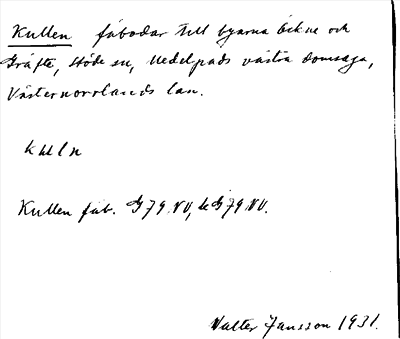 Kullen fäbodar till byarna Öskne och
Gräfte, Stöde sn, Medelpads västra domsaga,
Västernorrlands län.
kuln
Kullen fäb. G 79 NV, k G 79 NV.
Valter Jansson 1931.